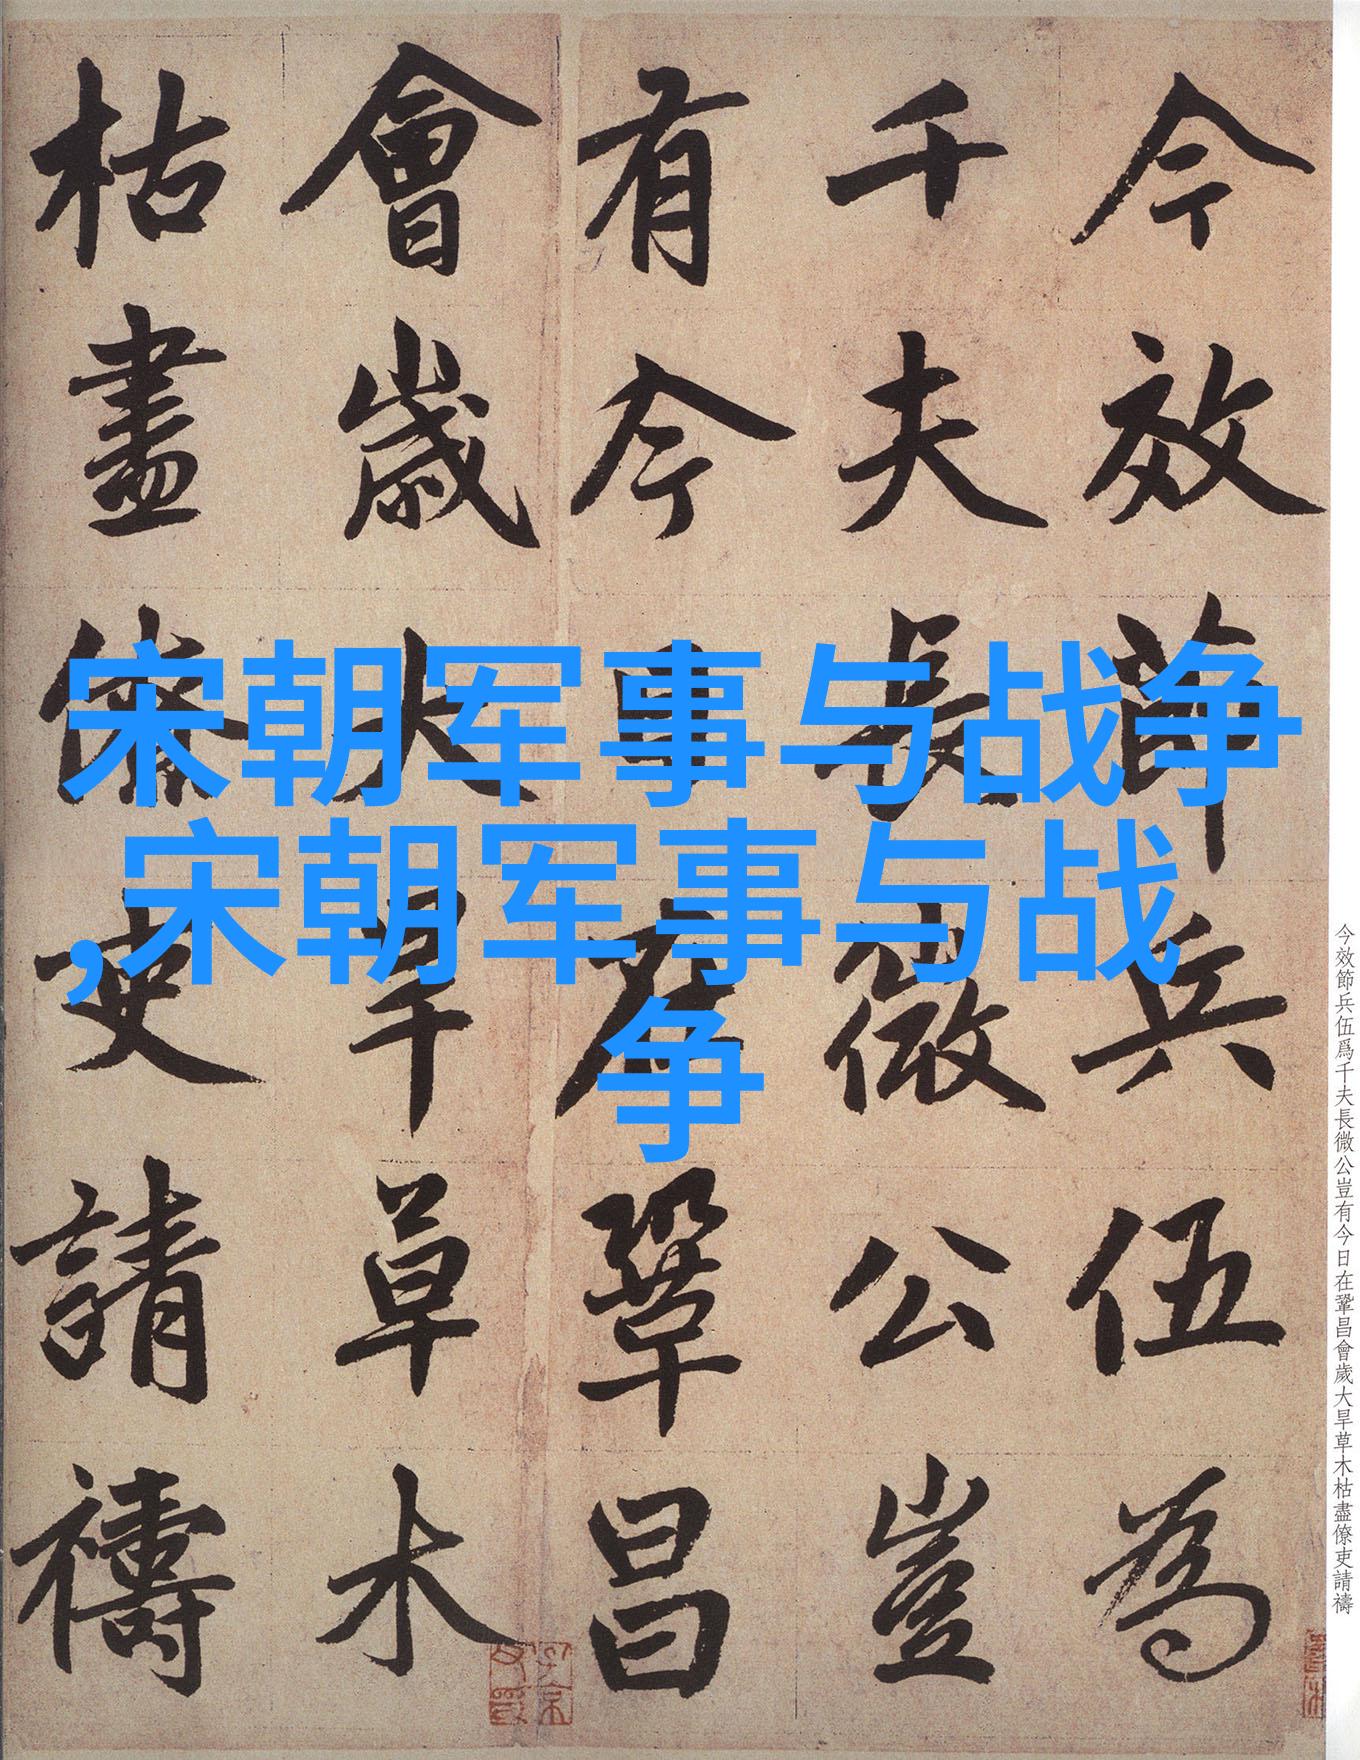 宋朝军事与战争
,宋朝军事与战
争
今效節兵伍為
千夫長微公豈
有今日在鞏昌
會歲大旱草木
枯盡僚吏請禱
今效節兵伍爲千夫長微公豈有今日在鞏昌會歲大旱草木枯盡僚吏請禱